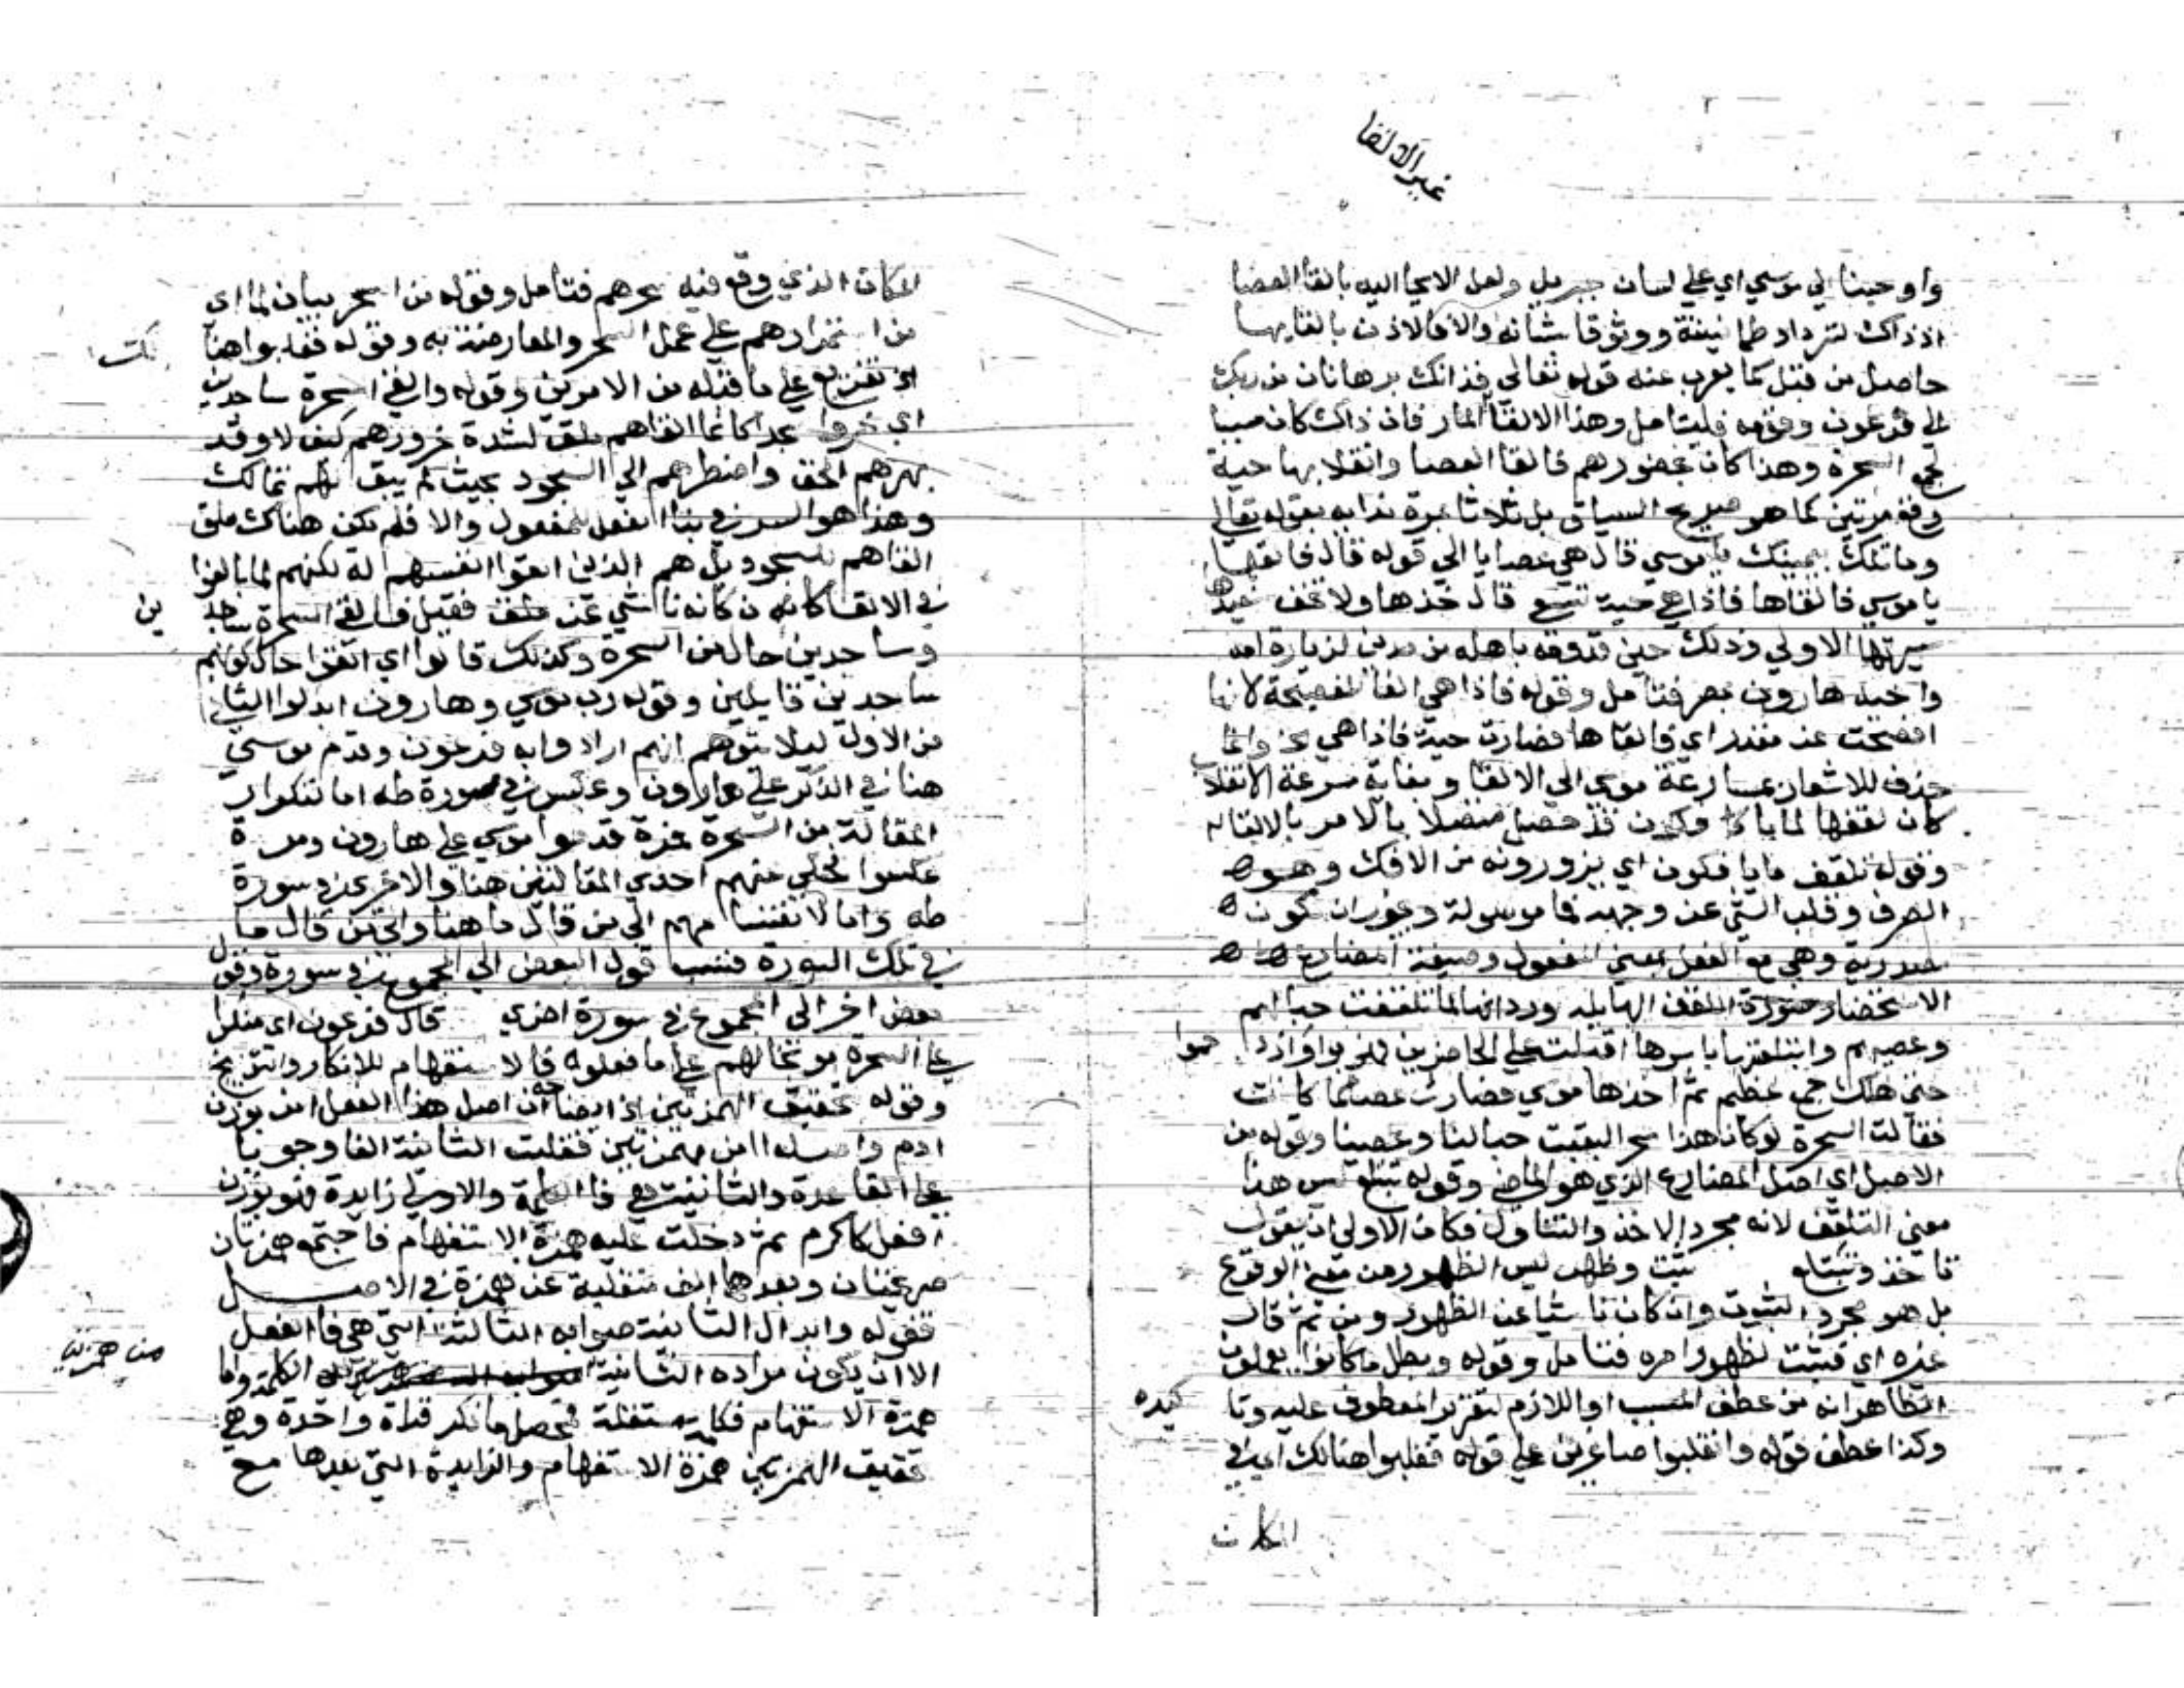 غير الالقا
واوحينا الي موسي اي علي لسان جبريل ولعل الايحا اليه بالقا العصا
اذ ذاك لتزداد طمانينة ووثوقا شانه والا فالاذن بالقايها
حاصل من قبل كما يعرب عنه قوله تعالي فذانك برهانان من ربك
الي فرعون وقومه فليتامل وهذا الالقا المار فان ذاك كان سببا
لجمع السحرة وهذا كان بحضورهم فالقا العصا وانقلابها حية
وقع مرتين كما هو صريح السياق بل ثلاثا مرة بدايه بقوله تعالي
وما تلك بيمينك يا موسي قال هي عصايا الي قوله قال فالقها
يا موسي فالقاها فاذا هي حية تسعي قال خذها ولا تخف سنعيدها
سيرتها الاولي وذلك حين قدومه باهله من مدين لزيارة امه
واخيه هارون بمصر فتامل وقوله فاذا هي الفا الفصيحة لانها
افصحت عن مقدر اي فالقاها فصارت حية فاذا هي الخ وانما
حذف للاشعار بمسارعة موسي الي الالقا وبغاية سرعة الانقلاب
كان لقفها لما يافكون قد حصل متصلا بالامر بالالقا له
وقوله تلقف ما يافكون اي يزورونه من الافك وهو
الصرف وقلب الشي عن وجهه فما موصولة ويجوز ان تكون
مصدرية وهي مع الفعل بمعني المفعول وصيغة المضارع
الاستحضار صورة اللقف الهايله وردانها لما تلقفت حبالهم
وعصيهم وابتلعتها باسرها اقبلت علي الحاضرين فهربوا وازد حموا
حتي هلك جمع عظيم ثم اخذها موسي فصارت عصا كما كانت
فقالت السحرة لو كان هذا سحرا لبقيت حبالنا وعصينا وقوله من
الاصل اي اصل المضارع الذي هو الماضي وقوله تبتلع ليس هذا
معني التلقف لانه مجرد الاخذ والتناول فكان الاولي ان يقول
تاخذ وتبتلع ثبت وظهر ليس الظهور من معني الوقوع
بل هو مجرد الثبوت وان كان ناشيا عن الظهور ومن ثم قال
غيره اي فثبت لظهور امره فتامل وقوله وبطل ما كانوا يعملون
الظاهر انه من عطف المسبب او اللازم لتقرير المعطوف عليه وتا كيده
وكذا عطف قوله وانقلبوا صاغرين علي قوله فغلبوا هنالك اي في
المكان
المكان الذي وقع فيه سحرهم فتامل وقوله من السحر بيان لما اي
من استمرارهم علي عمل السحر والمعارضة به وقوله فغلبوا هنا لك
اي تفريع علي ما قبله من الامرين وقوله والقي السحرة ساجدين
اي خروا سجدا كانما القاهم ملق لشدة خرورهم كيف لا وقد
بهرهم الحق واضطرهم الي السجود بحيث لم يبق لهم تمالك
وهذا هو السر في بنا الفعل للمفعول والا فلم يكن هناك ملق
القاهم للسجود بل هم الذين القوا انفسهم له لكنهم لما بالغوا
في الالقا كانه ناشي عن ملق فقيل فالقي السحرة ساجد ين
وساجدين حال من السحرة وكذلك قالوا اي القوا حال كونهم
ساجدين قايلين وقوله رب موسي وهارون ابدلوا الثاني
من الاول ليلا يتوهم انهم ارادوا به فرعون وقدم موسي
هنا في الذكر علي هارون وعكس في سورة طه اما لتكرار
المقالة من السحرة فمرة قدموا موسي علي هارون ومرة
عكسوا فحكي عنهم احدي المقالتين هنا والاخري في سورة
طه واما لانقسامهم الي من قال ما هنا والي من قال ما
في تلك السورة فنسب قول البعض الي المجموع في سورة وقول
بعض اخر الي المجموع في سورة اخري قال فرعون اي منكرا
علي السحرة موبخا لهم علي ما فعلوه فالاستفهام للانكار والتوبيخ
وقوله بتحقيق الهمزتين ان اصل هذا الفعل امن بوزن
ادم واصله اامن بهمزتين فقلبت الثانية الفا وجوبا
علي القاعدة والثانية هي فا الكلمة والاولي زايدة فهو بوزن
افعل كاكرم ثم دخلت عليه همزة الاستفهام فاجتمع همزتان
صريحتان وبعدها الف منقلبة عن همزة في الاصل
فقوله وابدال الثانية صوابه الثالثة التي هي فا الفعل
الا ان يكون مراده الثانية من همزتي الكلمة واما
همزة الاستفهام فكلمة مستقلة فحصل ما ذكر قراة واحدة وهي
تحقيق الهمزتين همزة الاستفهام والزايدة التي بعدها مع